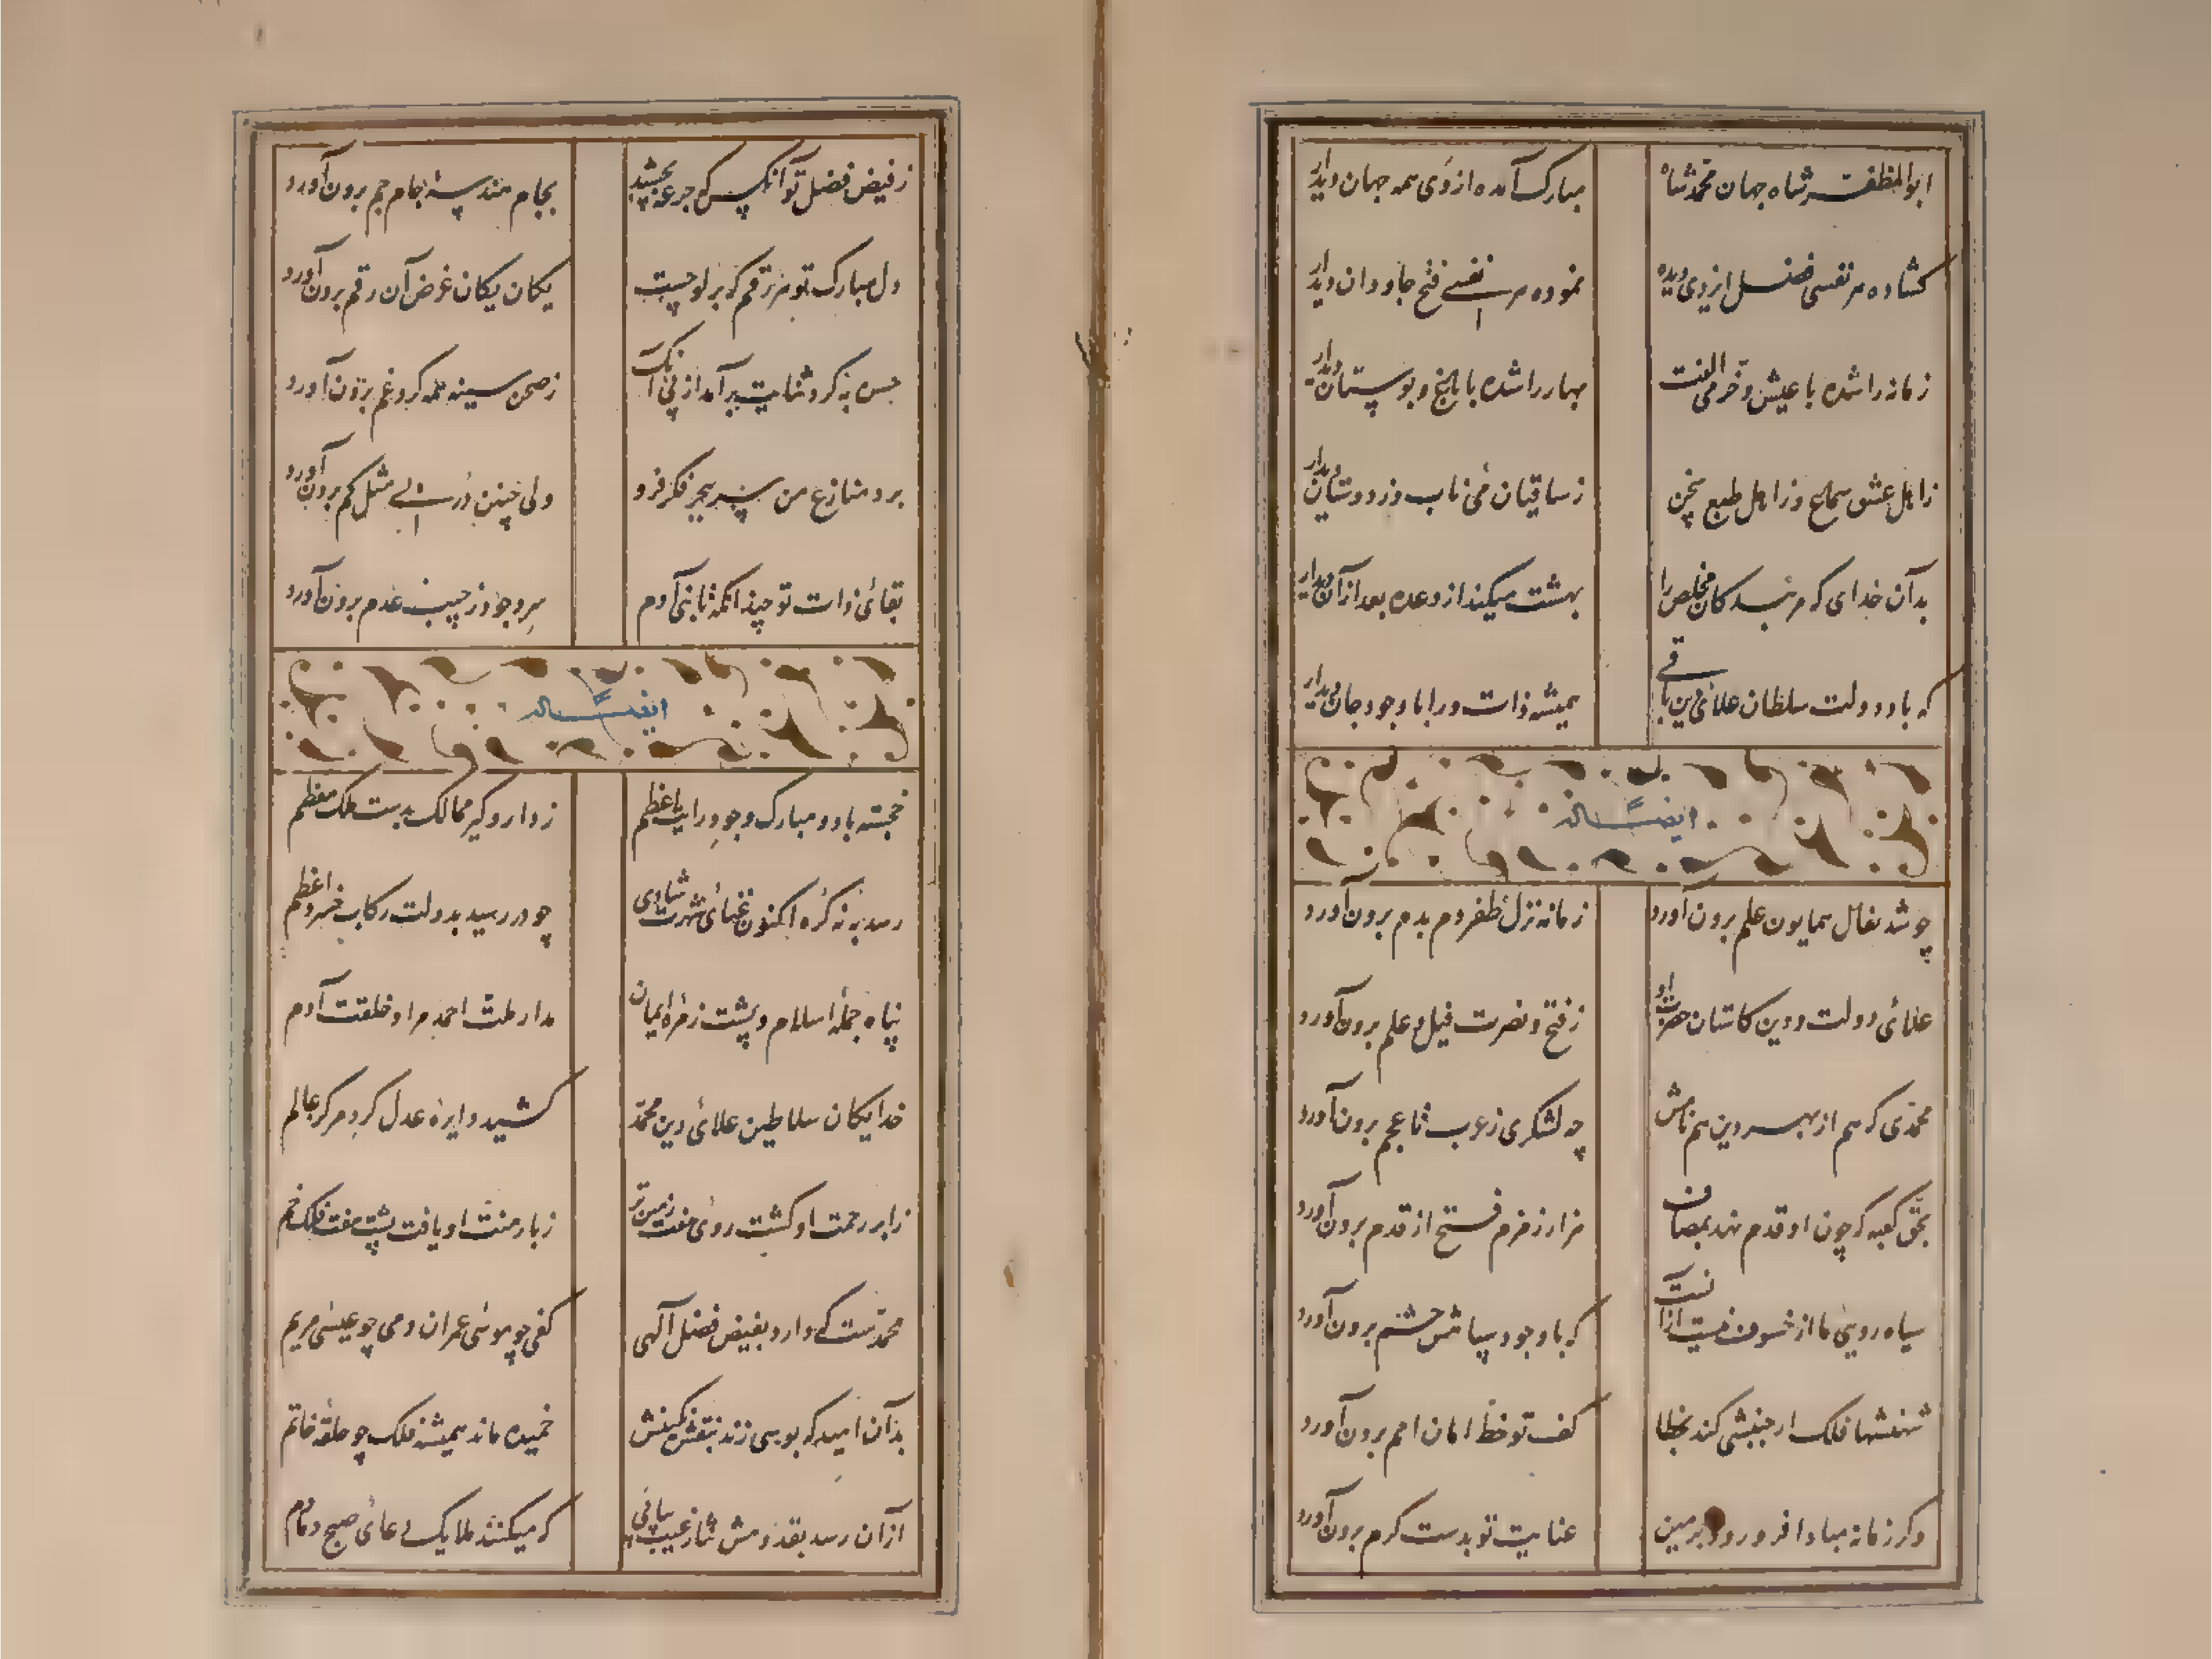 ابوالمظفر شاه جهان محمد شاه
مبارک آمده از وی همه جهان دیدار
کشاده هر نفسی فضل ایزدی دیده
نموده هر نفسے فتح جاودان دیدار
زمانه را شده با عیش و خرمی الفت
بهار را شده با باغ و بوستان دیدار
ز اهل عشق سماع و ز اهل طبع سخن
ز ساقیان می ناب و ز دوستان دیدار
بدآن خدای که هر بندکان مخلص را
بهشت میکند از وعده بعد ازآن دیدار
که باد دولت سلطان علائی دین باقے
همیشه ذات ورا با وجود جان دیدار
ایضاً له
چو شد بفال همایون علم برون آورد
زمانه نزل ظفر دم بدم برون آورد
علائی دولت و دین کاستان حضرت او
ز فتح و نصرت فیل و علم برون آورد
محمدی که هم از بهر دین هم نامش
چه لشکری ز عرب تا عجم برون آورد
بحق کعبه که چون او قدم نهد بمصاف
هزار زمزم فتح از قدم برون آورد
سیاه رویئ ما از خسوف نیست ازانست
که با وجود سپاهش حشم برون آورد
شهنشها فلک ار جنبشی کند بخطا
کف تو خط امان امم برون آورد
وکر زمانه مبادا فرو رود بزمین
عنایت تو بدست کرم برون آورد
ز فیض فضل تو آنکس که جرعهٔ بچشید
بجام هندسهٔ جام جم برون آورد
دل مبارک تو هر رقم که بر لوحیست
یکان یکان غرض آن رقم برون آورد
حسن که کرد ثنایت برآمد از پی آنک
ز صحن سینه همه کرد غم برون آورد
برد منازع من سر ببحر فکر فرو
ولی چنین در بے مثل کم برون آورد
بقائی ذات تو چندانکه تا بنی آدم
سر وجود ز جیب عدم برون آورد
ایضاً له
خجسته باد و مبارک وجود رایت اعظم
ز دار و کیر ممالک بدست ملک معظم
رسد به نه کره اکنون غنائی شهرت شادی
چو در رسید بدولت رکاب خسرو اعظم
پناه جملهٔ اسلام و پشت زمرهٔ ایمان
مدار ملت احمد مراد خلقت آدم
خدایکان سلاطین علائی دین محمد
کشید دایرهٔ عدل کرد مرکز عالم
ز ابر رحمت او کشت روی هفت زمین تر
ز بار منت او یافت پشت هفت فلک خم
محمدست که دارد بفیض فضل آلهی
کفی چو موسی عمران دمی چو عیسی مریم
بدآن امید که بوسی زند بنقش نکینش
خمیده ماند همیشه فلک چو حلقهٔ خاتم
ازآن رسد بقدومش نثار غیب پیاپی
که میکنند ملایک دعائی صبح دمادم